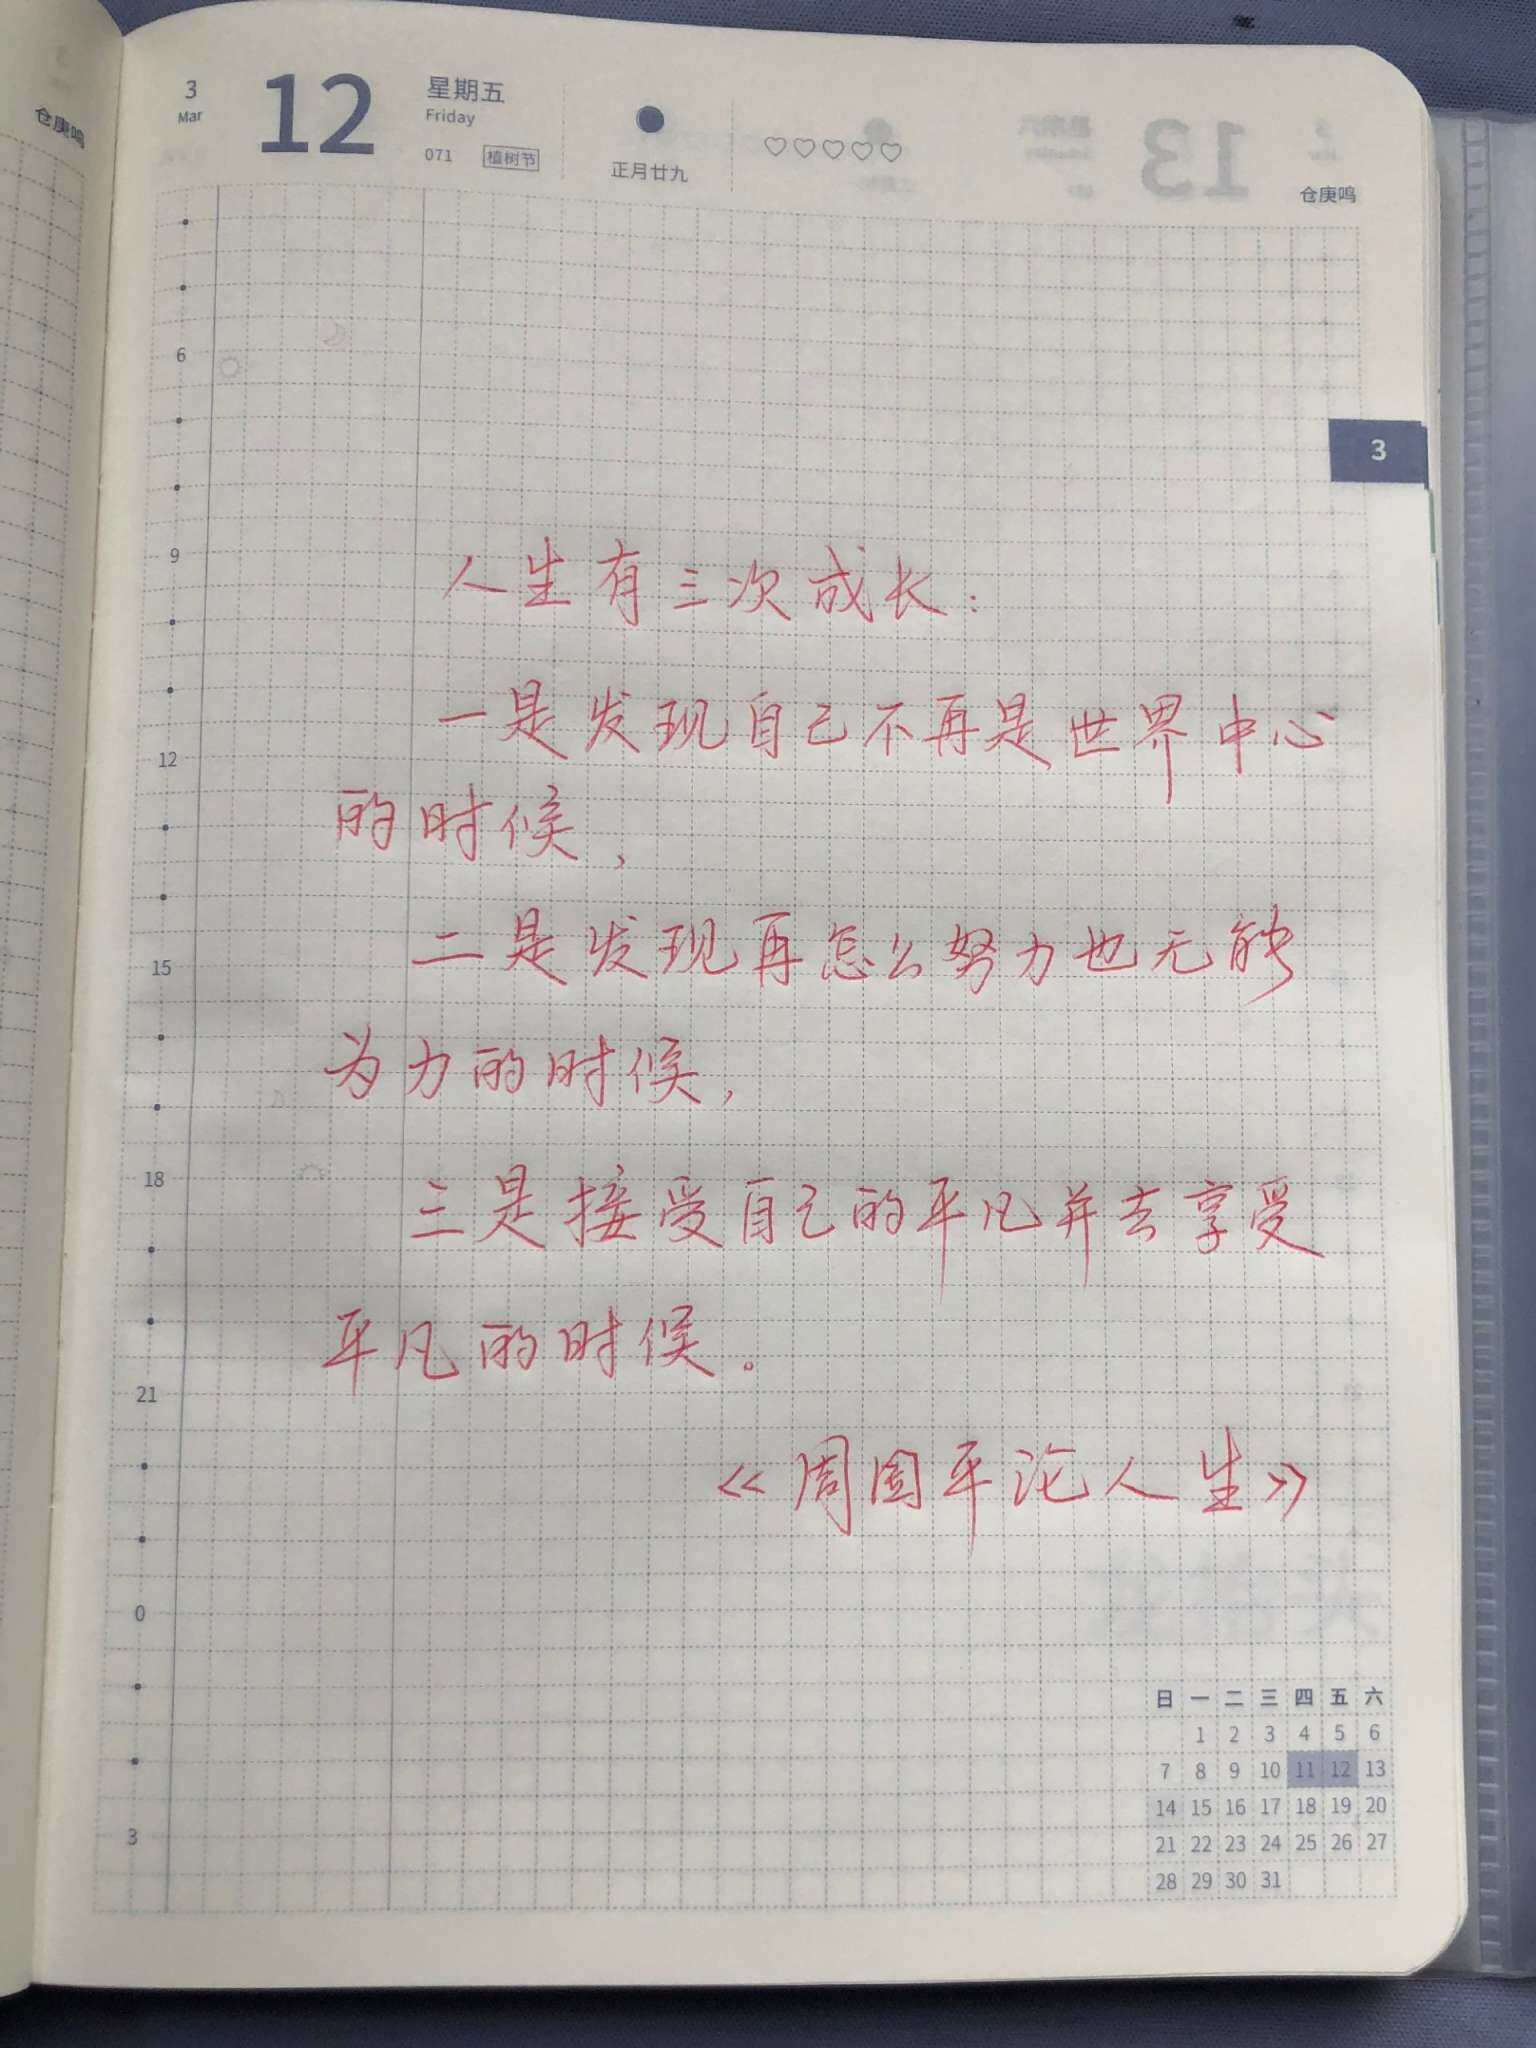 仓庚鸣
3
Mar
12
星期五
Friday
071 植树节
正月廿九
仓庚鸣
3
6
9
人生有三次成长：
一是发现自己不再是世界中心
12
的时候，
二是发现再怎么努力也无能
15
为力的时候，
18
三是接受自己的平凡并去享受
平凡的时候。
21
《周国平论人生》
0
3
日 一 二 三 四 五 六
1 2 3 4 5 6
7 8 9 10 11 12 13
14 15 16 17 18 19 20
21 22 23 24 25 26 27
28 29 30 31